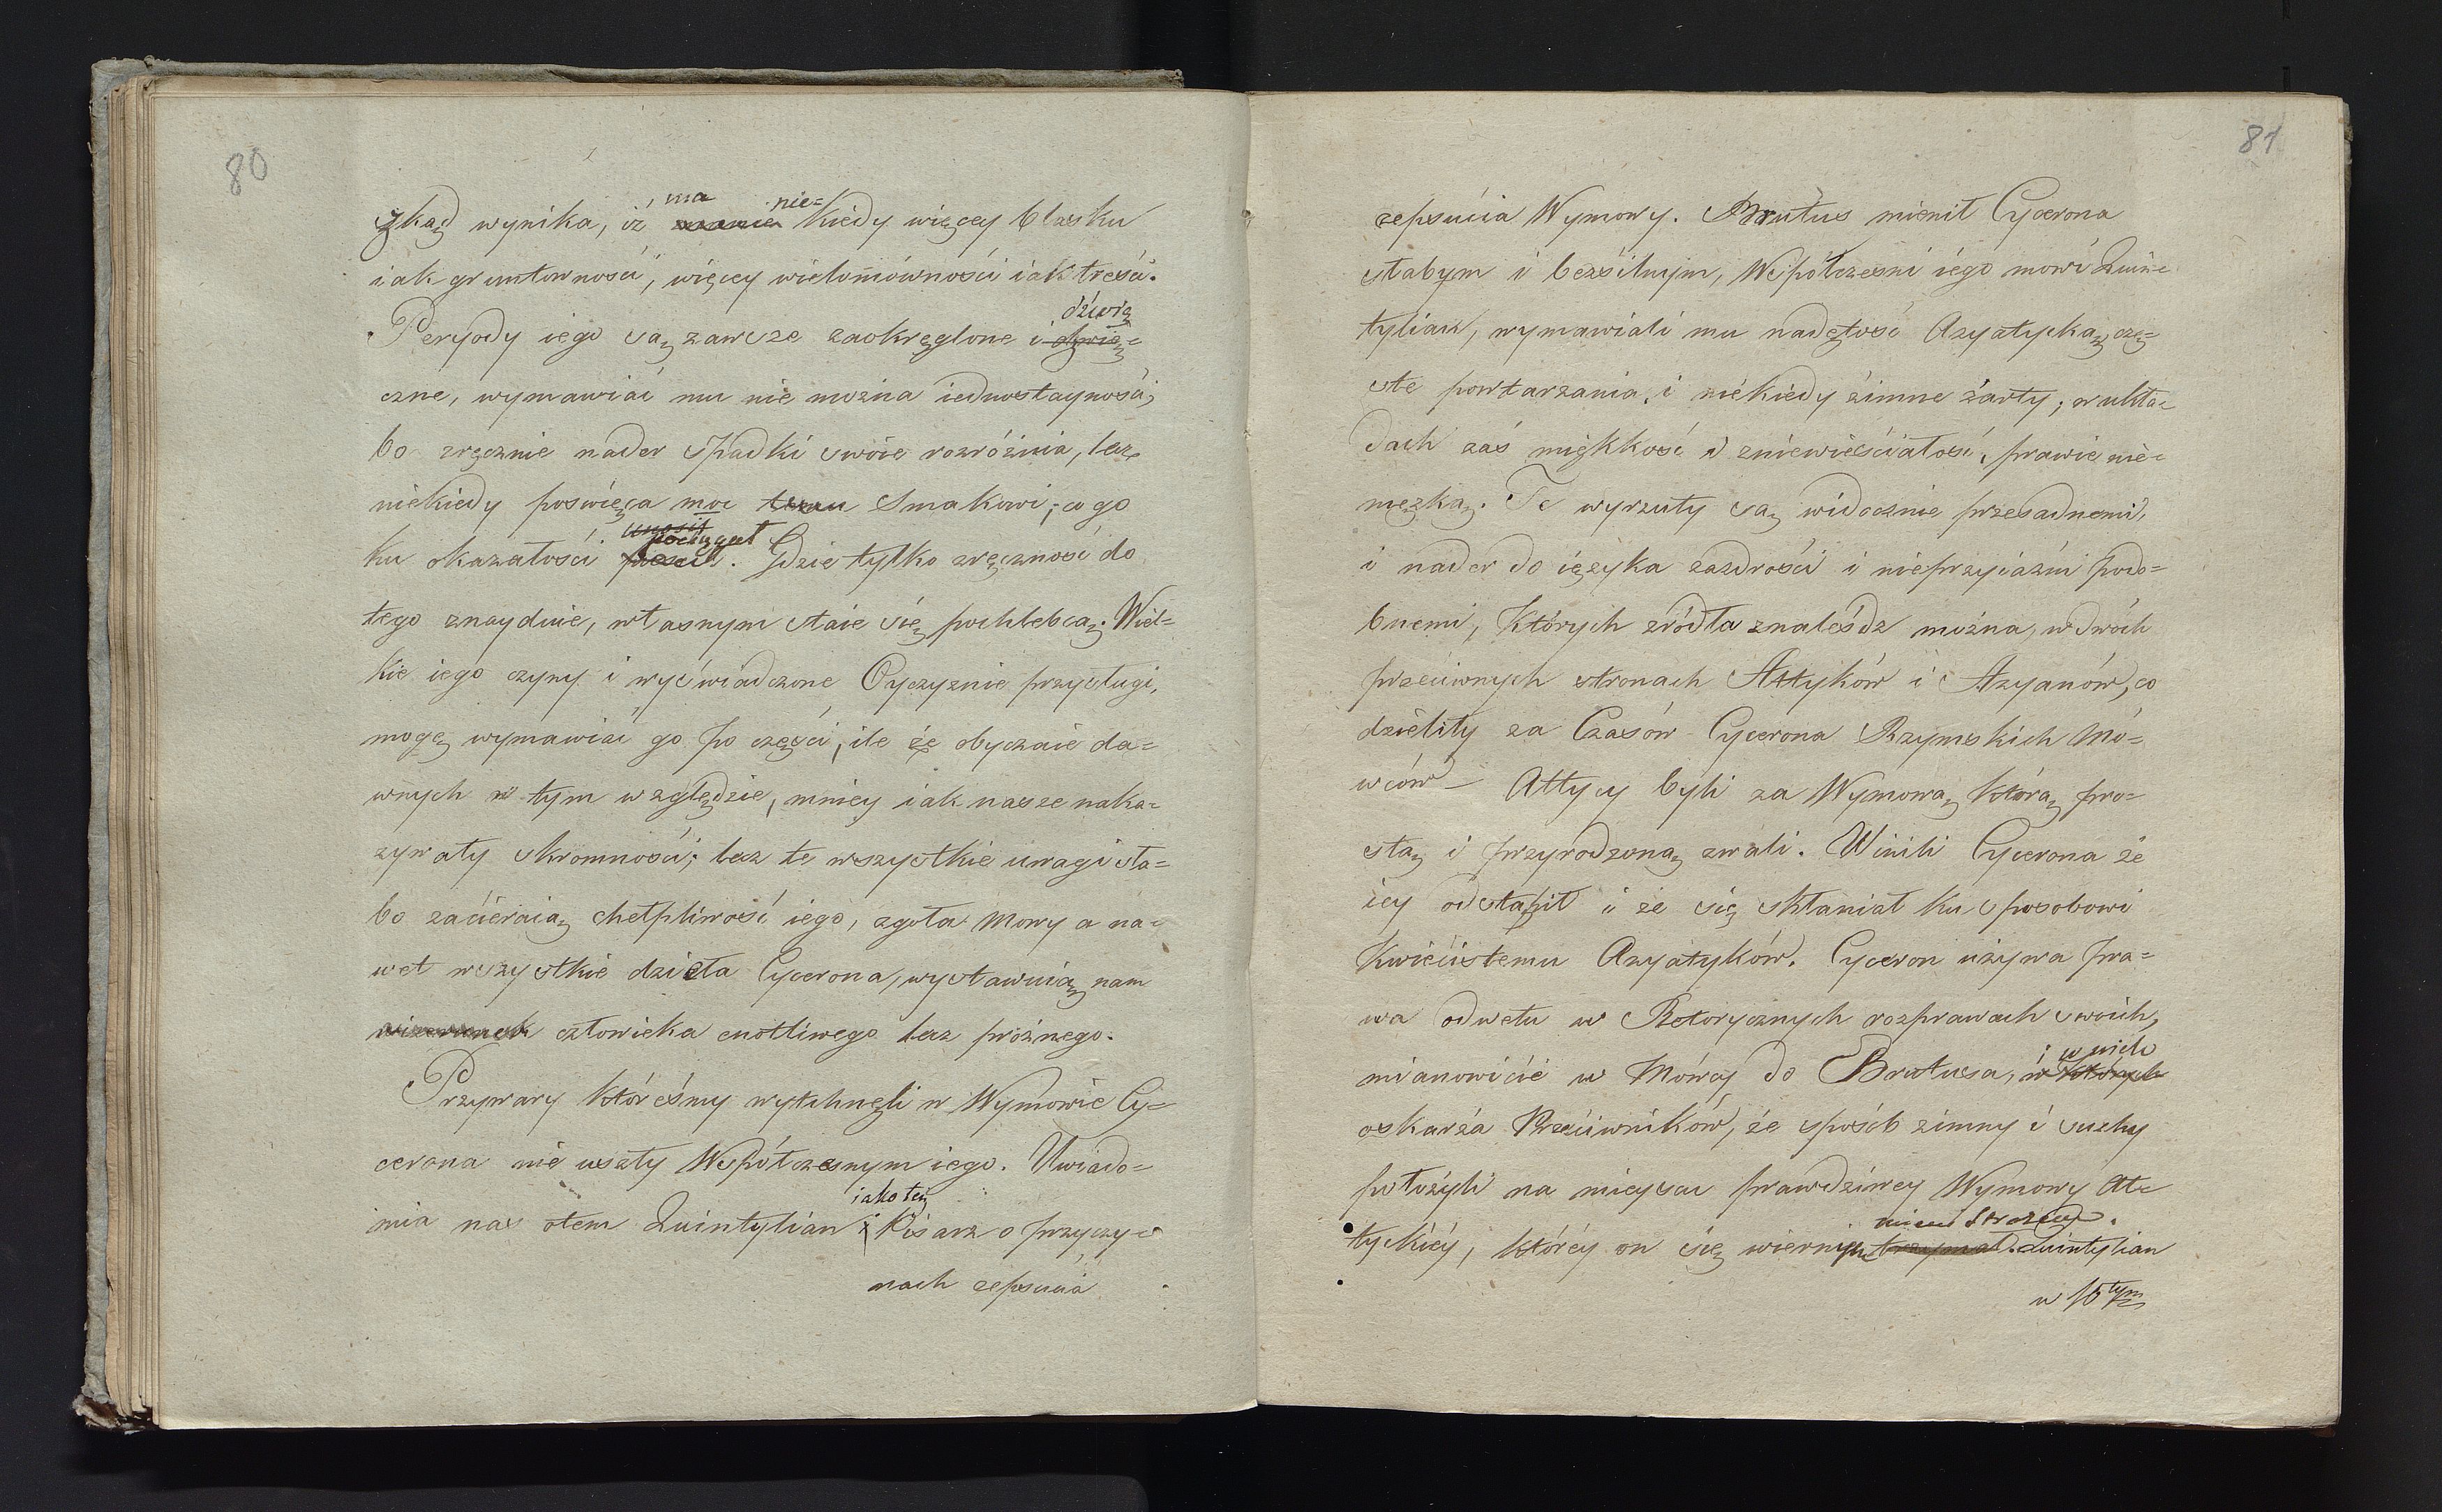 80
zkąd wynika, iż ma niekiedy więcey blasku
iak gruntowności, więcey wielomówności iak treści.
Peryody iego są zawsze zaokręglone i dźwię=
czne, wymawiać mu nie można iednostayności,
bo zręcznie nader spadki swoie rozróżnia, lecz
niekiedy poświęca moc smakowi, co go
ku okazałości pociągał. Gdzie tylko zręczność do
tego znayduie, własnym staie się pochlebcą. Wiel=
kie iego czyny i wyświadczone Oyczyznie przysługi,
mogą wymawiać go po części, ile że obyczaie da=
wnych w tym względzie, mniey iak nasze naka=
zywały skromności; lecz te wszystkie uwagi sła=
bo zacieraią chełpliwość iego, zgoła Mowy a na=
wet wszystkie dzieła Cycerona, wystawuią nam
wizerunek człowieka cnotliwego lecz próżnego.
Przywary któreśmy wytchnęli w Wymowie Cy=
cerona nie uszły Współczesnym iego. Uwiado=
mia nas otem Quintylian iako też Pisarz o przyczy=
nach zepsucia
81
zepsucia Wymowy. Brutus mienił Cycerona
słabym i bezsilnym, Współczesni iego mowi Quin=
tylian, wymawiali mu nadętość Azyatycką, czę=
ste powtarzania, i niekiedy zimne żarty, w ukła=
dach zaś miękkość i zniewieściałość, prawie nie=
męzką. Te wyrzuty są widocznie przesadnemi,
i nader do ięzyka zazdrości i nieprzyiaźni podo=
bnemi, których źródła znaleśdz można, w dwóch
przeciwnych stronach Attyków i Azyanów, co
dzieliły za Czasów Cycerona Rzymskich Mó=
wców – Attycy byli za Wymową którą pro=
stą i przyrodzoną zwali. Winili Cycerona że
iey odstąpił i że się skłaniał ku sposobowi
kwiecistemu Azyatyków. Cyceron używa pra=
wa odwetu w Retorycznych rozprawach swoich,
mianowicie w Mówcy do Brutusa, i w nich
oskarża Przeciwników, że sposób zimny i suchy
położyli na mieyscu prawdziwey Wymowy At=
tyckiéy, któréy on się wiernym mieni Strożem. Quintylian
w 10tym